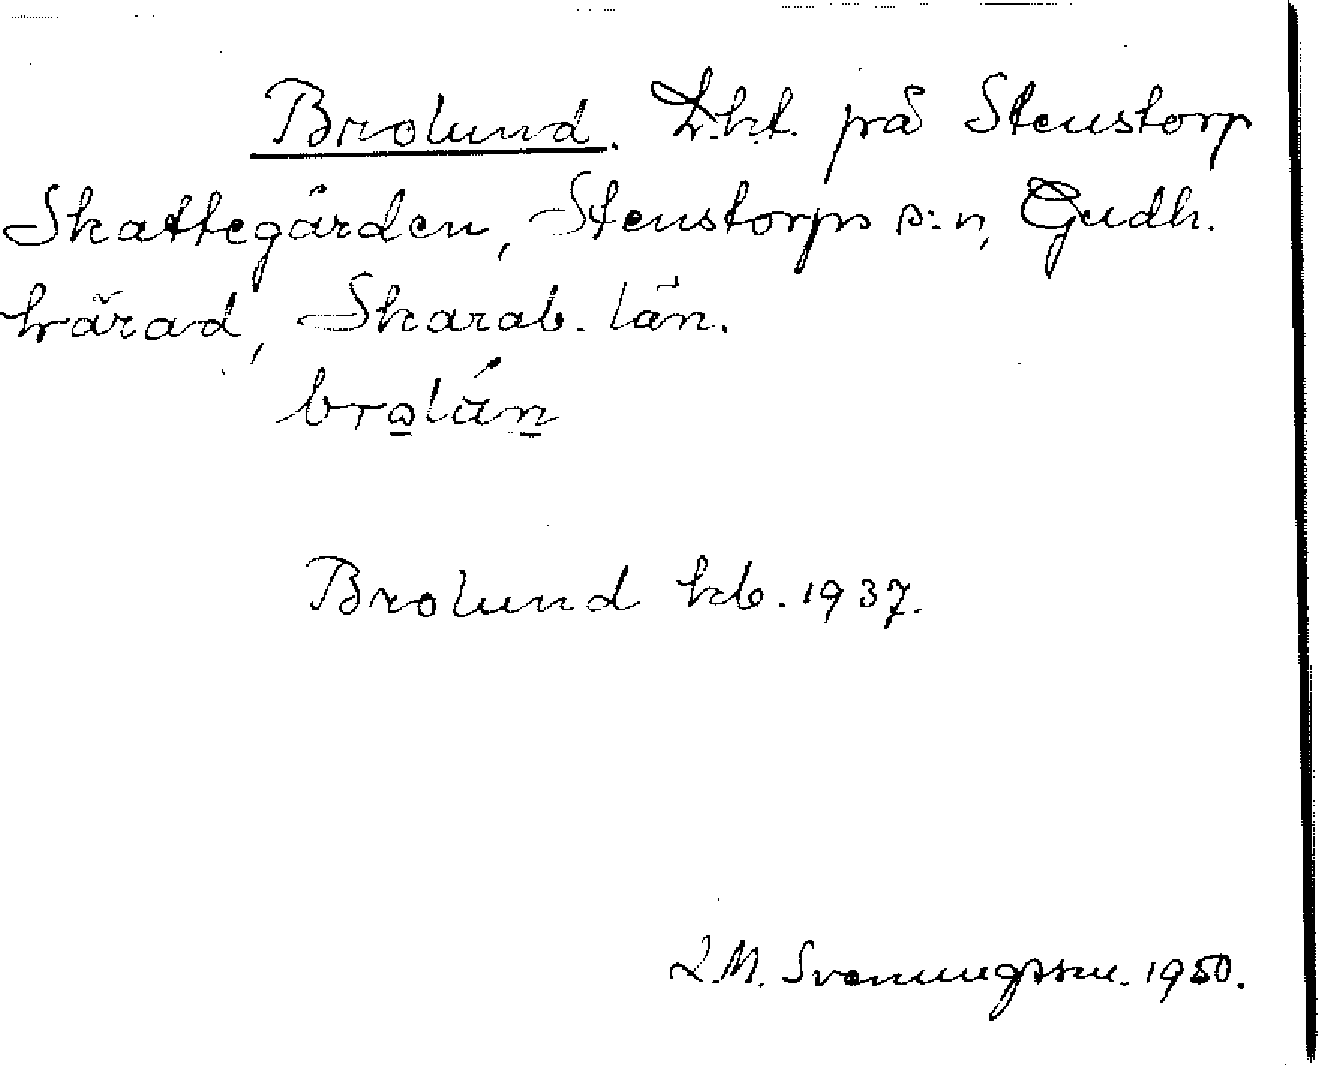 Brolund. Lht. på Stenstorp
Skattegården, Stenstorps s:n, Gudh.
härad, Skarab. län.
brolán
Brolund kb. 1937.
L.M. Svenungsson. 1950.